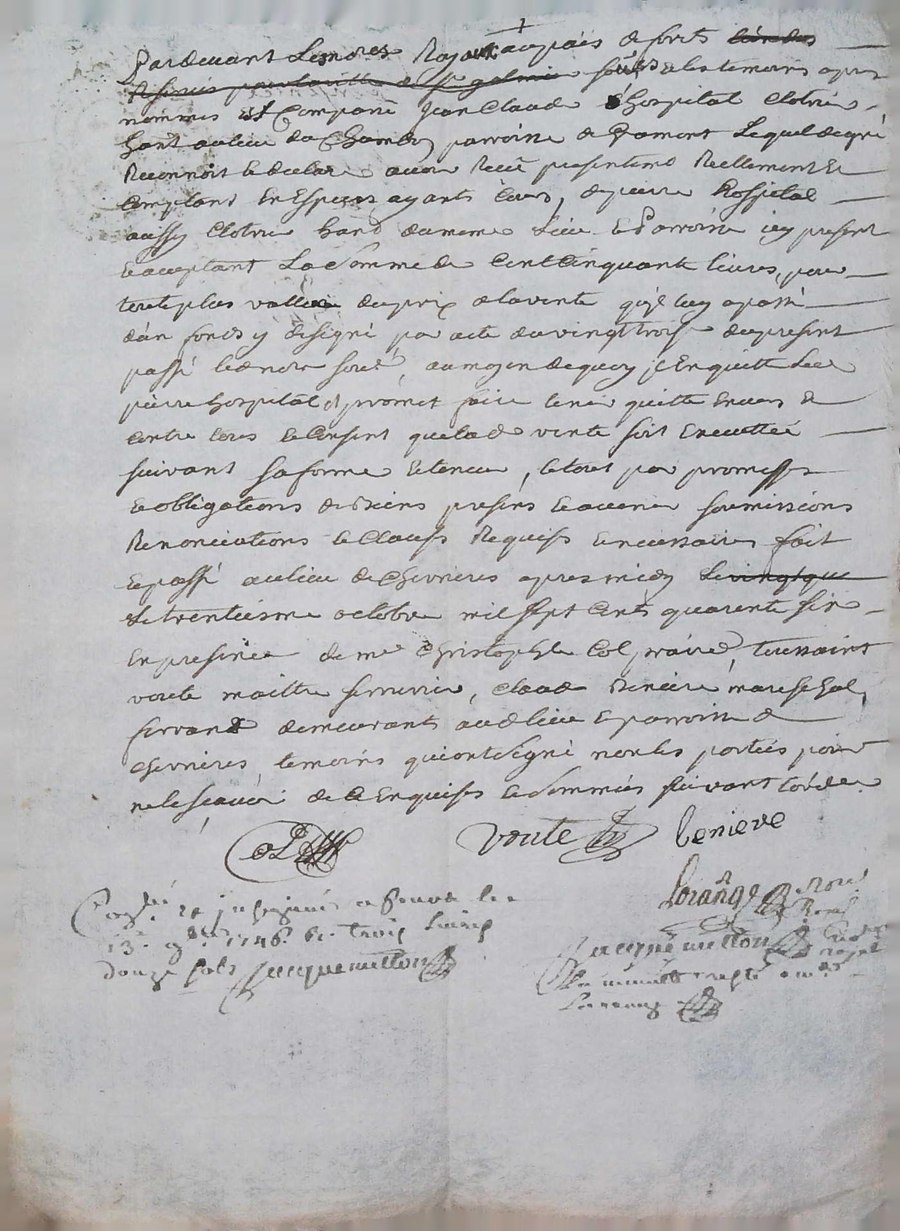 Pardevant Le nore Royal au païs de forets
soues. & les temoins apres
nommes est Comparu Jean Claude L'hospital Clotrie
hant au lieu du Chambon parroisse de Gramont Lequel de gré
Reconnoit & declare avoir Receu presentemt Reellement &
Comptant En Especes ayants Cours, de pierre hospital
aussy Clotrie hand du meme Lieu & Parroisse icy present
& acceptant La somme de Cent Cinquante livres, pour
toute plus vallue du prix de la vente qu'il luy a passé
d'un fonds y designé par acte du vingt trois du present
passé pdt le nore sousé, au moyen de quoy il En quitte Led
pierre hospital & promet faire tenir quitte Envers &
Contre tous & Consent que lad vente soit Executtée
suivant sa forme & teneur, le tout par promesses
& obligations de Biens presens & avenir soumissions
Renonciations & Clauses Requises & necessaires fait
& passé au lieu de Chevrieres apres midy
Le trentiesme octobre mil sept Cents quarente six
En presence de me Christophle Col praire, toussaint
voute maitre serrurier, Claude Beniere mareschal
servant demeurants audt lieu & parroisse de
Chevrieres temoins qui ont signé non les parties pour
ne le scavoir de Ce Enquises & sommées suivant l'orde.
Col voute benieve
Loränge nore Royal
Conlé et insinué a le
13e 9bre 1746. R. trois livres
douze sols Jacquemetton
Jacquemetton
La minutte
Loorange